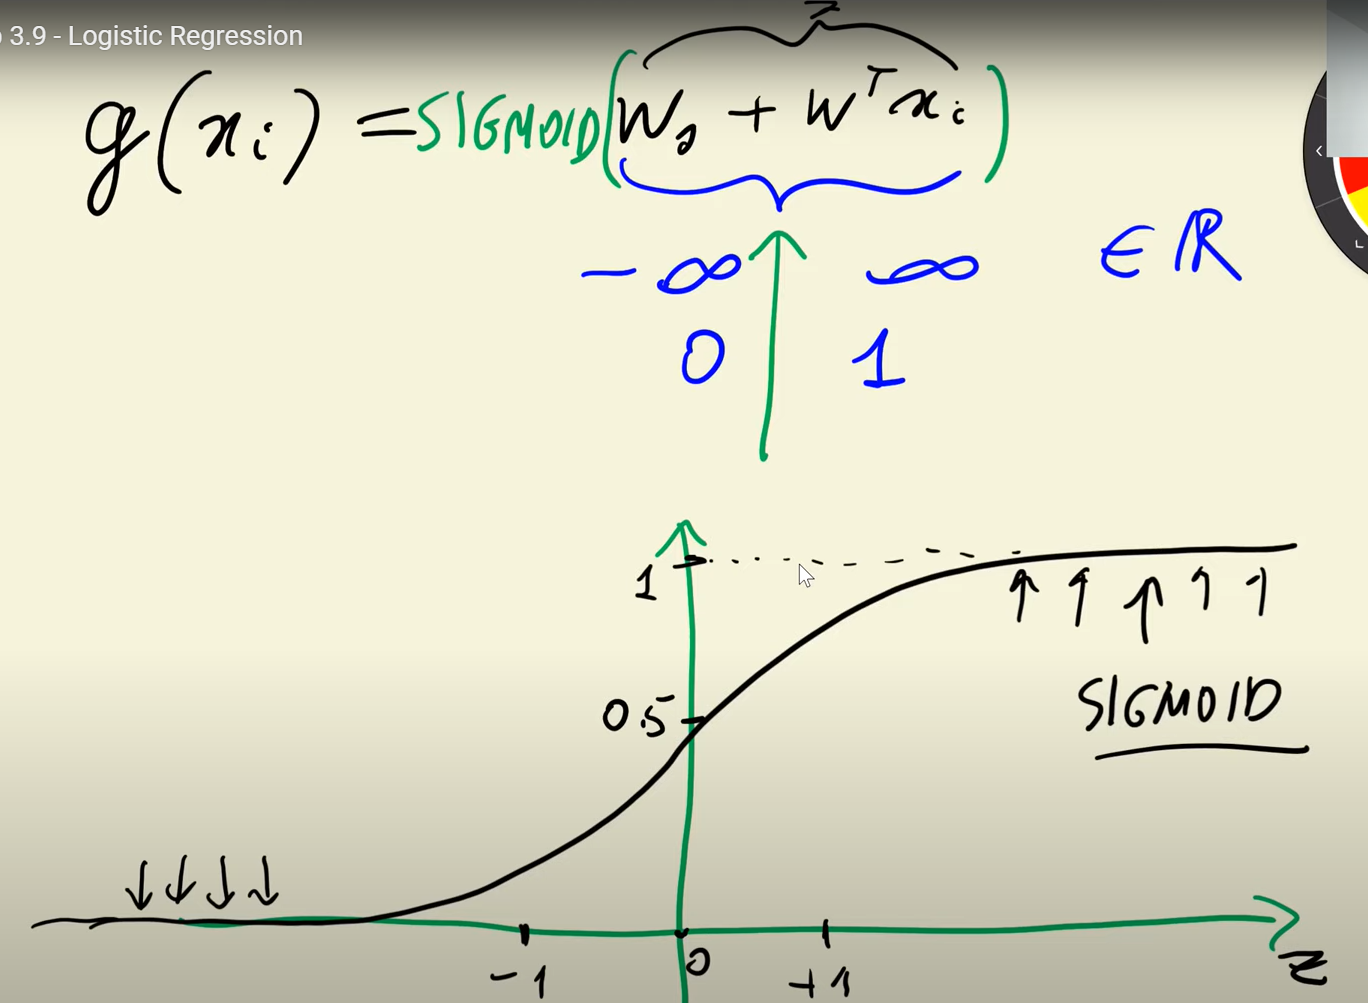 3.9 - Logistic Regression
z
g(xᵢ) = SIGMOID(W₀ + Wᵀxᵢ)
-∞ ∞ ∈ ℝ
0 1
1
0.5
SIGMOID
-1 0 +1 z